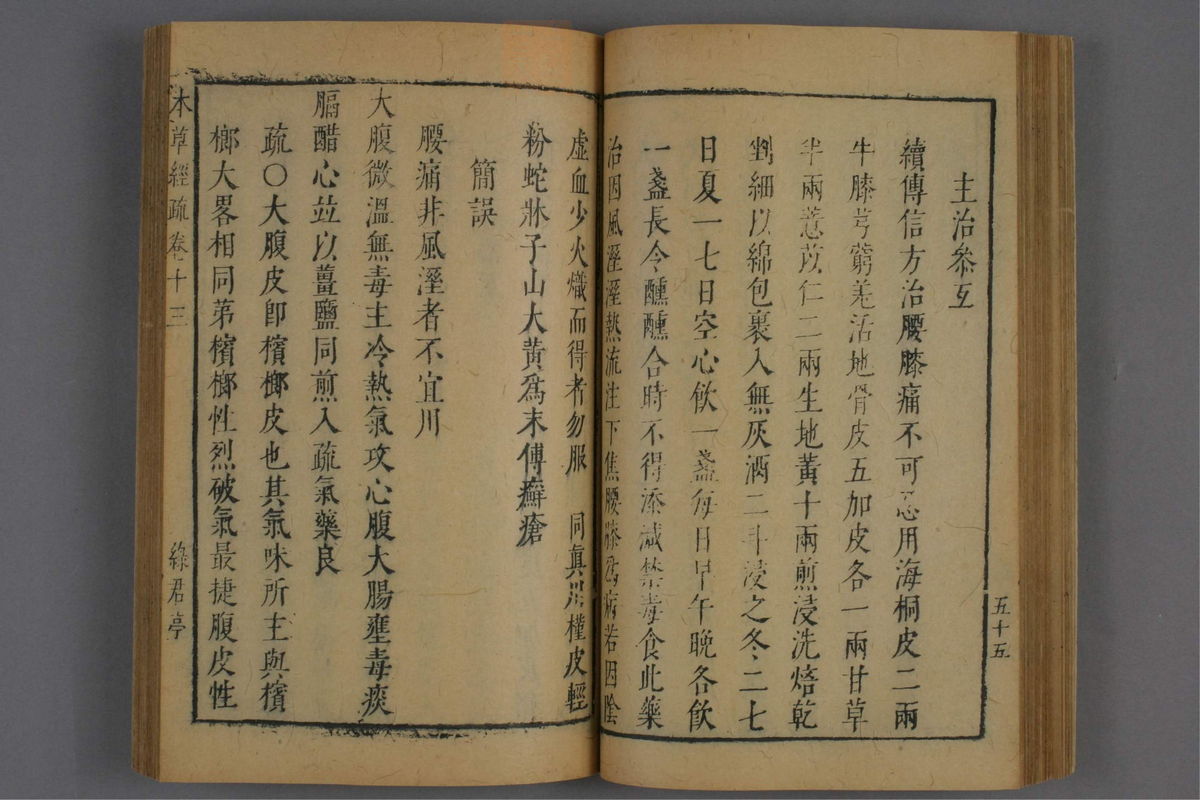 五十五
主治參互
續傳信方治腰膝痛不可忍用海桐皮二兩
牛膝芎藭羌活地骨皮五加皮各一兩甘草
半兩薏苡仁二兩生地黃十兩煎浸洗焙乾
剉細以綿包裹入無灰酒二斗浸之冬二七
日夏一七日空心飲一盞每日早午晚各飲
一盞長令醺醺合時不得添減禁毒食此藥
治因風溼溼熱流注下焦腰膝爲病若因陰
虛血少火熾而得者勿服 同真川槿皮輕
粉蛇牀子山大黃爲末傅癬瘡
簡誤
腰痛非風溼者不宜川
大腹微溫無毒主冷熱氣攻心腹大腸壅毒痰
膈醋心竝以薑鹽同煎入疏氣藥良
疏〇大腹皮卽檳榔皮也其氣味所主與檳
榔大畧相同第檳榔性烈破氣最捷腹皮性
本草經疏 卷十三 綠君亭